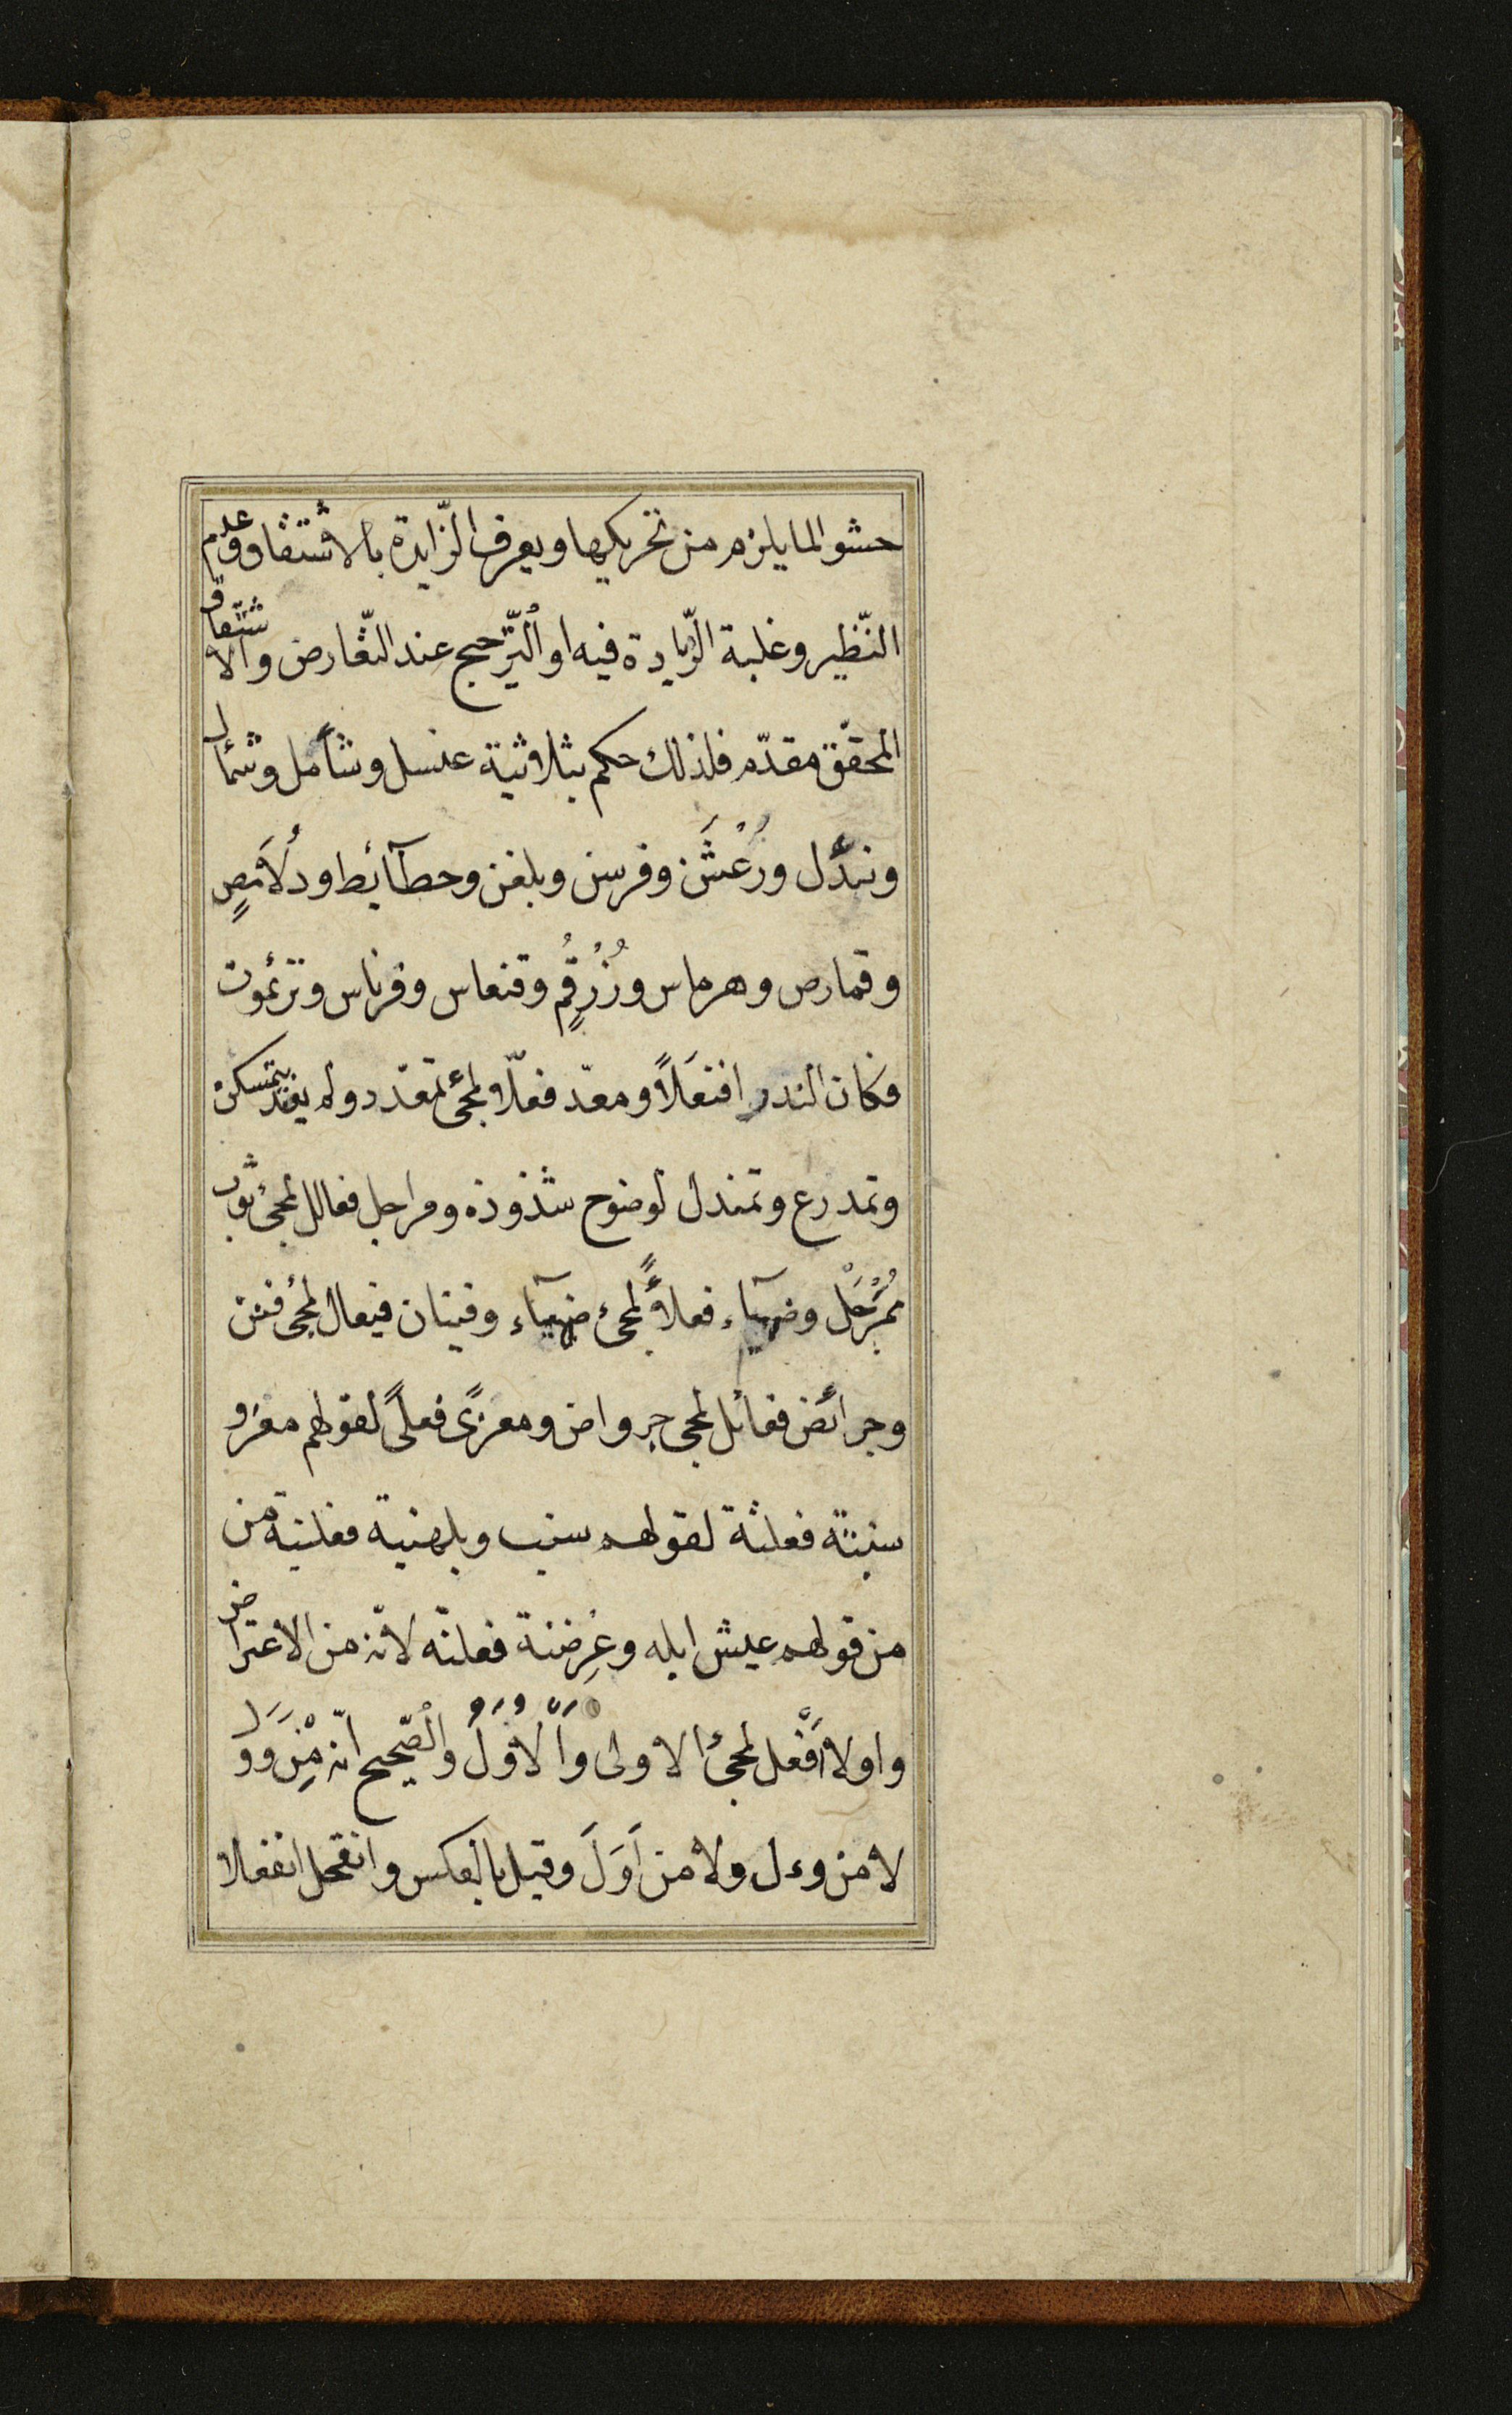 حشوا لما يلزم من تحريكها ويعرف الزّايدة بالاشتقاق وعدم
النّظير وغلبة الزّيادة فيه او التّرّجيح عند التّعارض والاشتقاق
المحقّق مقدّم فلذلك حكم بثلاثية عنسل وشأمل وشمأل
ونئدل ورُعْشَن وفرسن وبلغن وحطآئط ودُلاَمَصٍ
وقمارص وهرماس وزُرْقُمٍ وقنعاس وفرناس وترنموت
فكان الندد افنعَلاً ومعدّ فعلّا لمجئ تمعدد ولم يعتد بتمسكن
وتمدرع وتمندل لوضوح شذوذه ومراجل فعالل لمجئ ثوب
مُمَرْجَلْ وضهيآء فعلأً لمجئ ضهيآء وفينان فيعال لمجئ فنن
وجرائض فعائل لمجى جرواض ومعزًى فعلًى لقولهم معز و
سنبتة فعلتة لقولهم سنب وبلهنية فعلنية من
من قولهم عيش ابله وعِرضنة فعلنّه لانّه من الاعتراض
واولا أَفْعل لمجئ الاولى وَالْاُوَلُ والصّحيح انّه مِنْ وَوَلَ
لا من وءل ولا من اَوَلَ وقيل بالعكس وانقحل انفعلا